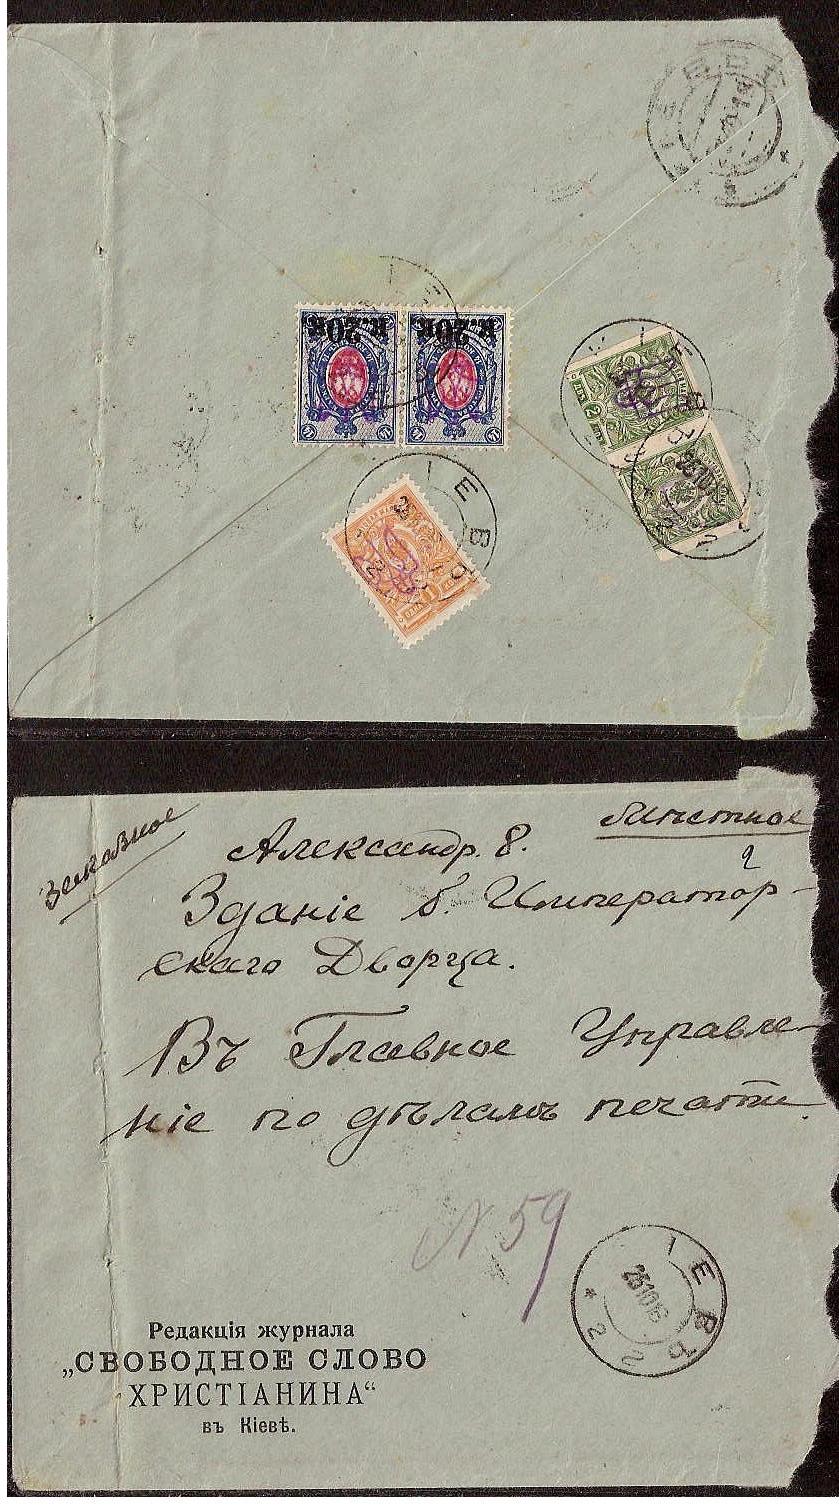 К.20К.
К.20К.
ІЕВЪ
ІЕВЪ
Заказное
мѣстное
Александр. 8.
2
Зданіе б. Император-
скаго Дворца.
Въ Главное Управле-
ніе по дѣламъ печати.
N 59
ІЕВЪ
251016
* 2 2
Редакція журнала
„СВОБОДНОЕ СЛОВО
ХРИСТІАНИНА“
въ Кіевѣ.